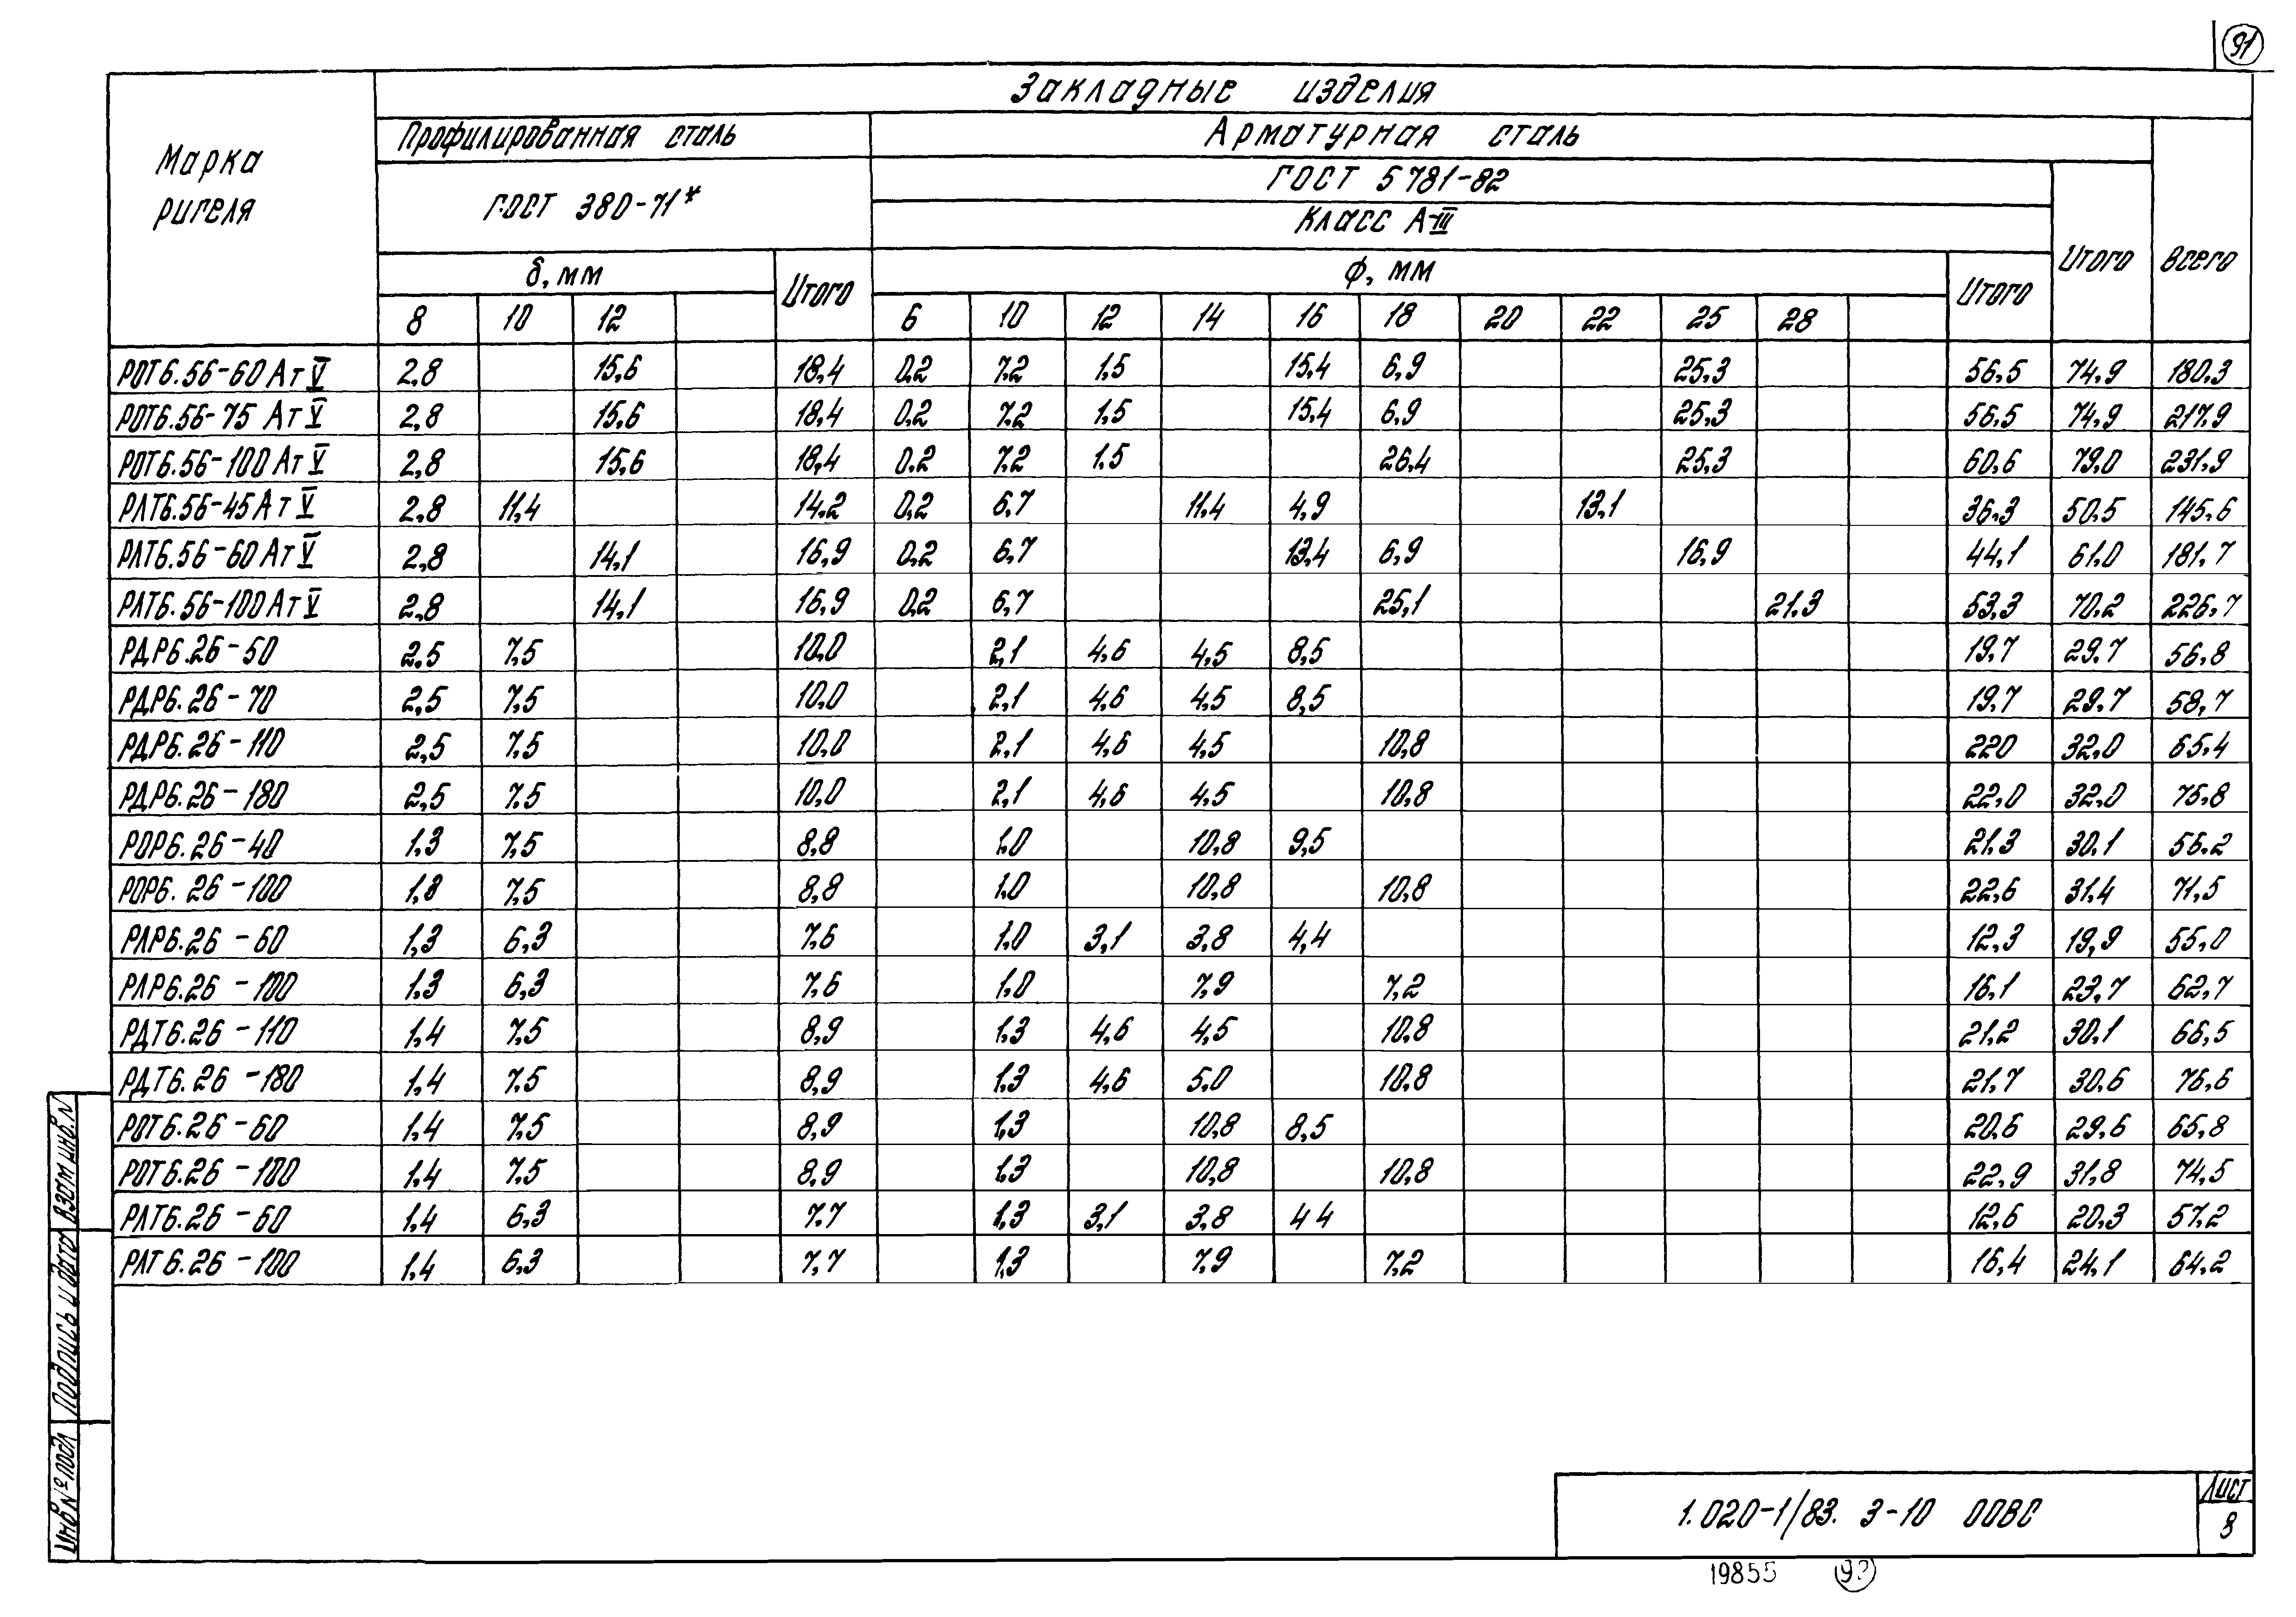 91
Закладные изделия
Профилированная сталь Арматурная сталь
Марка ригеля ГОСТ 380-71* ГОСТ 5781-82
Класс А-III
δ, мм Итого ϕ, мм Итого Итого Всего
8 10 12 6 10 12 14 16 18 20 22 25 28
РОТ6.56-60АтV 2,8 15,6 18,4 0,2 7,2 1,5 15,4 6,9 25,3 56,5 74,9 180,3
РОТ6.56-75 АтV 2,8 15,6 18,4 0,2 7,2 1,5 15,4 6,9 25,3 56,5 74,9 217,9
РОТ6.56-100АтV 2,8 15,6 18,4 0,2 7,2 1,5 26,4 25,3 60,6 79,0 231,9
РЛТ6.56-45АтV 2,8 11,4 14,2 0,2 6,7 11,4 4,9 13,1 36,3 50,5 145,6
РЛТ6.56-60АтV 2,8 14,1 16,9 0,2 6,7 13,4 6,9 16,9 44,1 61,0 181,7
РЛТ6.56-100АтV 2,8 14,1 16,9 0,2 6,7 25,1 21,3 53,3 70,2 226,7
РДР6.26-50 2,5 7,5 10,0 2,1 4,6 4,5 8,5 19,7 29,7 56,8
РДР6.26-70 2,5 7,5 10,0 2,1 4,6 4,5 8,5 19,7 29,7 58,7
РДР6.26-110 2,5 7,5 10,0 2,1 4,6 4,5 10,8 220 32,0 65,4
РДР6.26-180 2,5 7,5 10,0 2,1 4,6 4,5 10,8 22,0 32,0 75,8
РОР6.26-40 1,3 7,5 8,8 1,0 10,8 9,5 21,3 30,1 56,2
РОР6.26-100 1,3 7,5 8,8 1,0 10,8 10,8 22,6 31,4 71,5
РЛР6.26-60 1,3 6,3 7,6 1,0 3,1 3,8 4,4 12,3 19,9 55,0
РЛР6.26-100 1,3 6,3 7,6 1,0 7,9 7,2 16,1 23,7 62,7
РДТ6.26-110 1,4 7,5 8,9 1,3 4,6 4,5 10,8 21,2 30,1 66,5
РДТ6.26-180 1,4 7,5 8,9 1,3 4,6 5,0 10,8 21,7 30,6 76,6
РОТ6.26-60 1,4 7,5 8,9 1,3 10,8 8,5 20,6 29,6 65,8
РОТ6.26-100 1,4 7,5 8,9 1,3 10,8 10,8 22,9 31,8 74,5
РЛТ6.26-60 1,4 6,3 7,7 1,3 3,1 3,8 4 4 12,6 20,3 57,2
РЛТ6.26-100 1,4 6,3 7,7 1,3 7,9 7,2 16,4 24,1 64,2
Взам инв.N
Подпись и дата
Инв № подл
1.020-1/83. 3-10 00ВС
Лист
8
19855